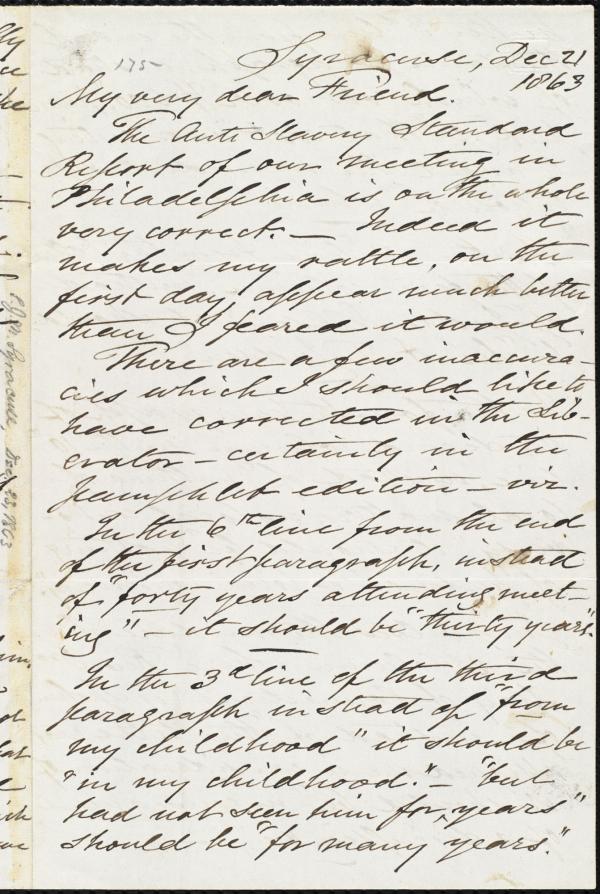 175-
Syracuse, Dec 21
1863
My very dear Friend.
The Anti Slavery Standard
Report of our meeting in
Philadelphia is on the whole
very correct. — Indeed it
makes my rattle, on the
first day, appear much better
than I feared it would.
There are a few inaccura-
cies which I should like to
have corrected in the Lib-
erator — certainly in the
pamphlet edition — viz.
In the 6th line from the end
of the first paragraph, instead
of "forty years attending meet-
ing" — it should be "thirty years".
In the 3d line of the third
paragraph instead of "from
my childhood" it should be
"in my childhood." — "but
had not seen him for years"
should be "for many years."
S.J.M. Syracuse, Dec. 23, 1863